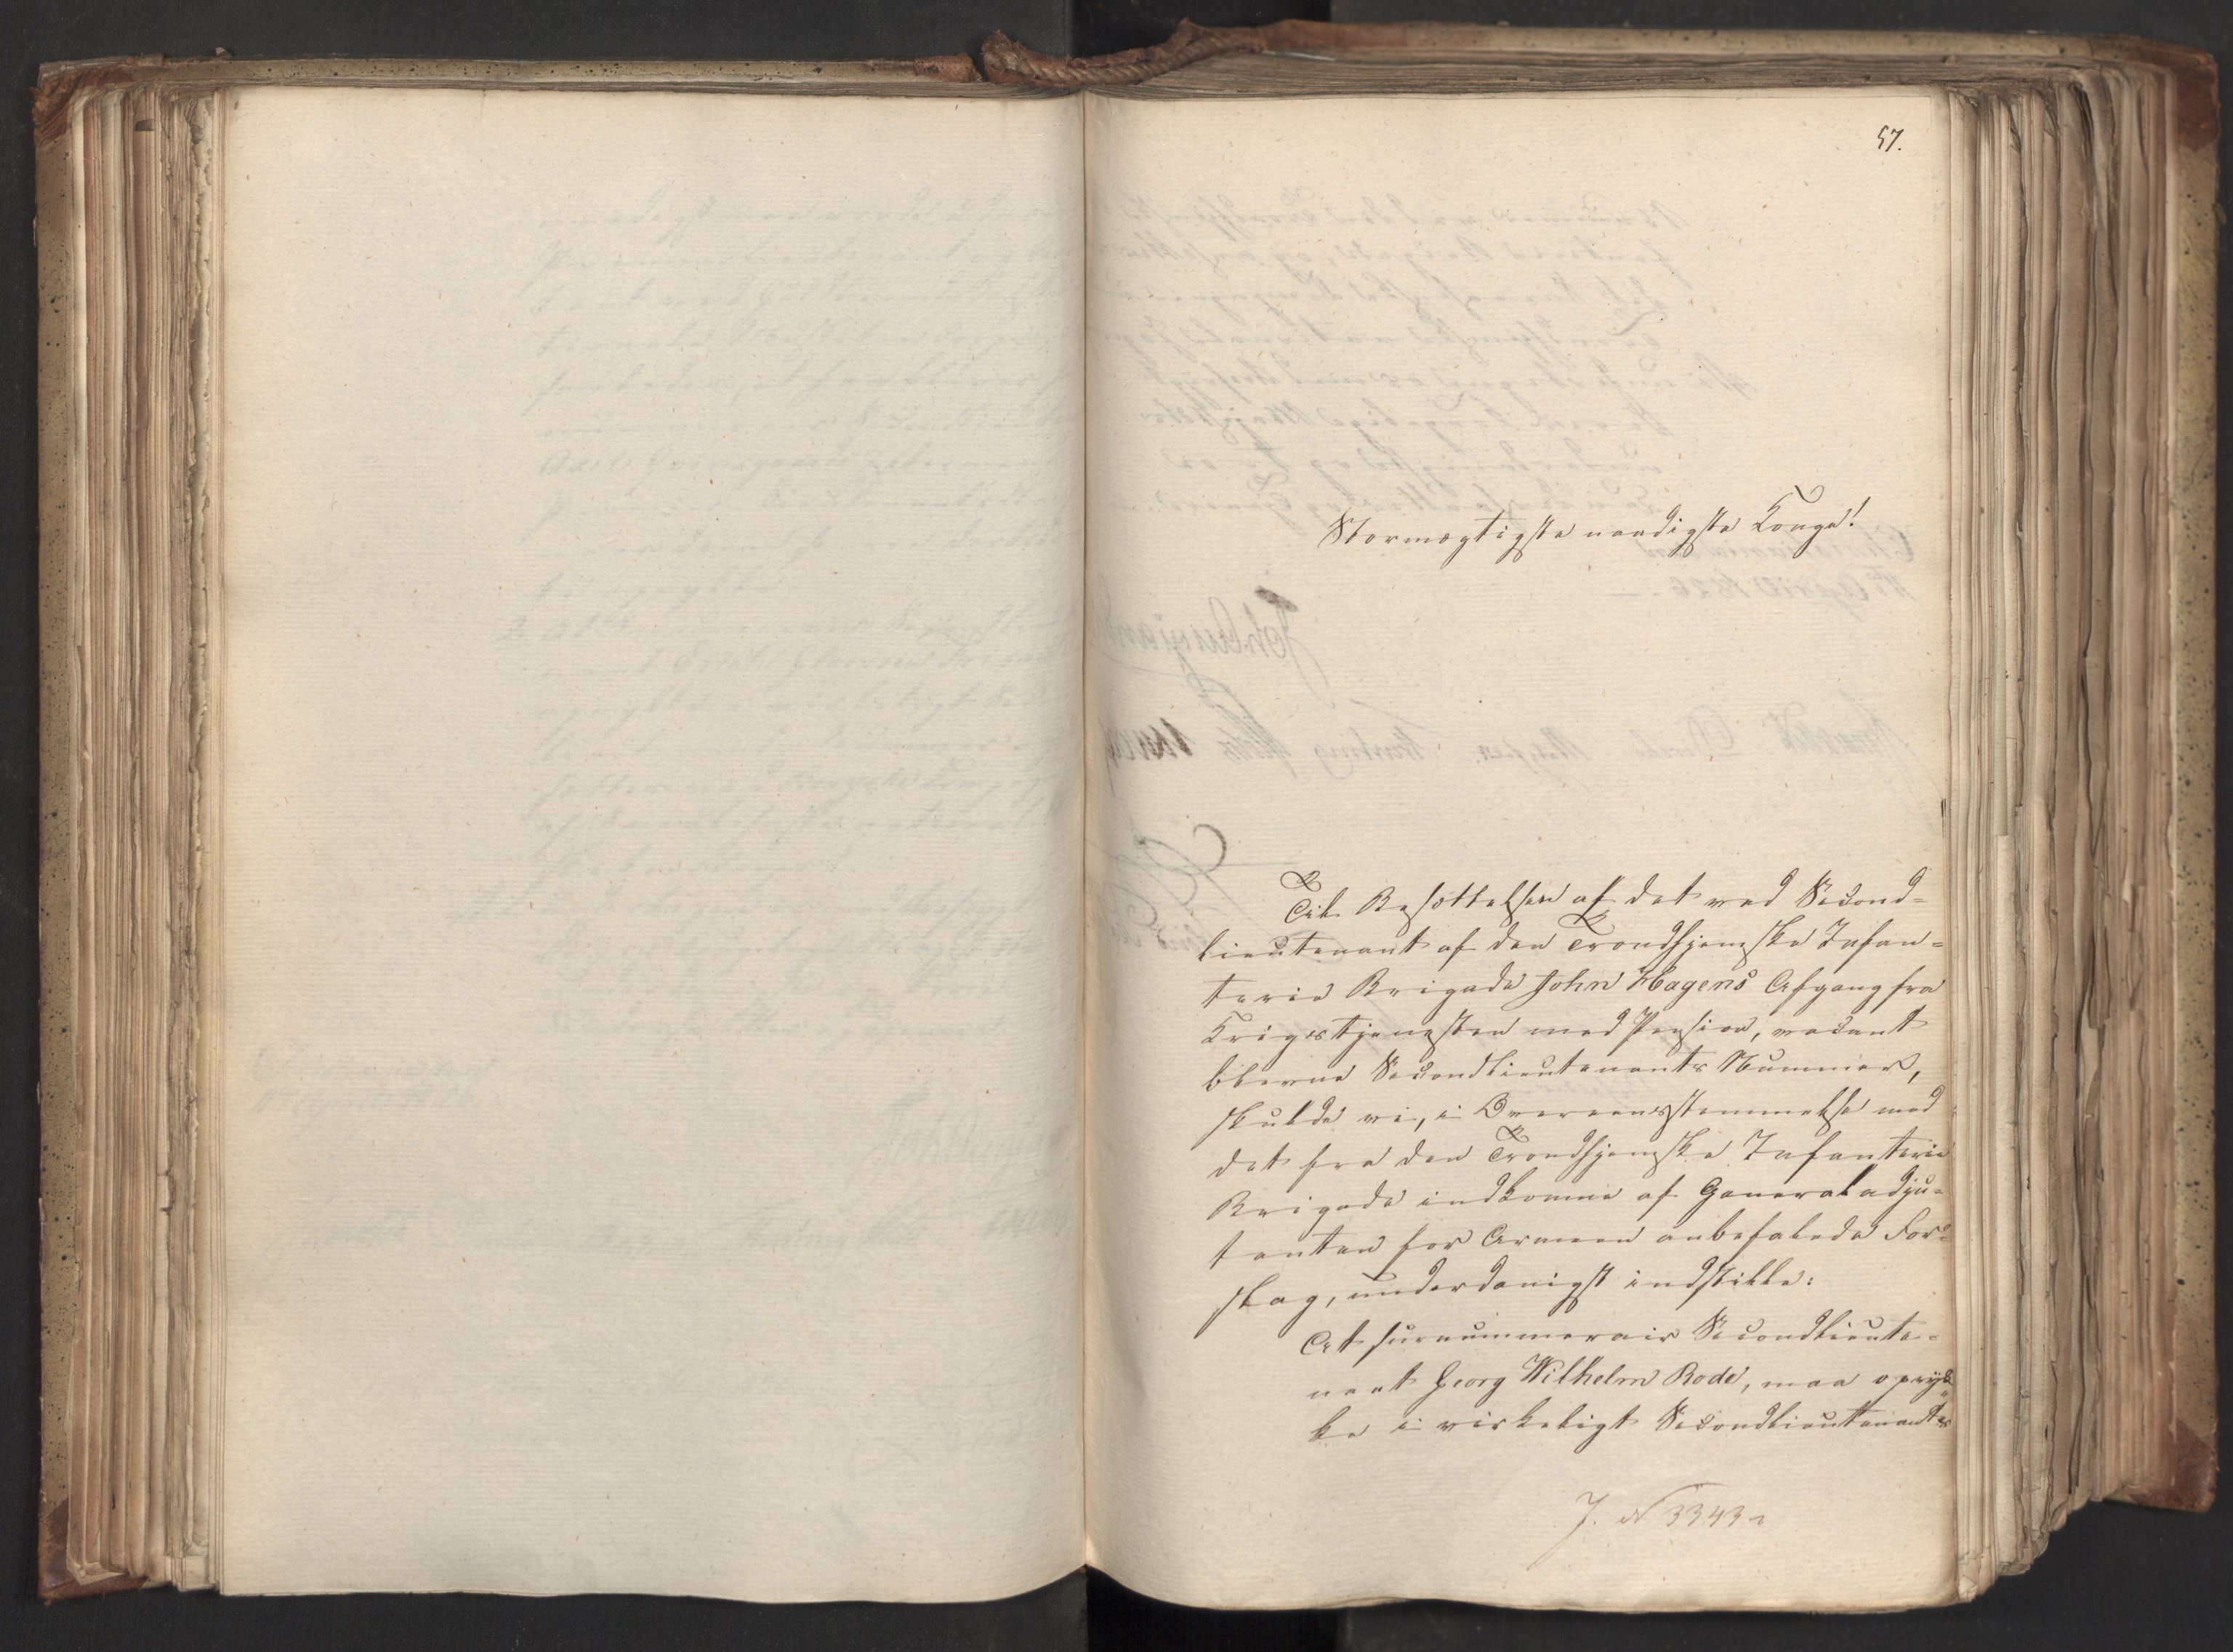 57.
Stormægtigste naadigste Konge!
Til Besættelsen af det ved Second=
lieutenant af den Trondhjemske Infan=
terie Brigade John Hagens Afgang fra
Krigstjenesten med Pension, vacant
blevne Secondlieutenants Nummer,
skulde vi, i Overeensstemmelse med
det fra den Trondhjemske Infanterie
Brigade indkomne af Generaladju=
tanten for Armeen anbefalede For=
slag, underdanigst indstille:
At surnummerair Secondlieute=
nant Georg Wilhelm Rode, maa opryk=
ke i virkeligt Secondlieutenants
J. N 3343